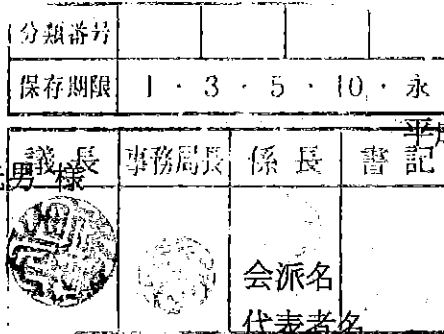 分類番号
保存期限 1・3・5・10・永
平
議長 事務局長 係長 書記
男 様
会派名
代表者名